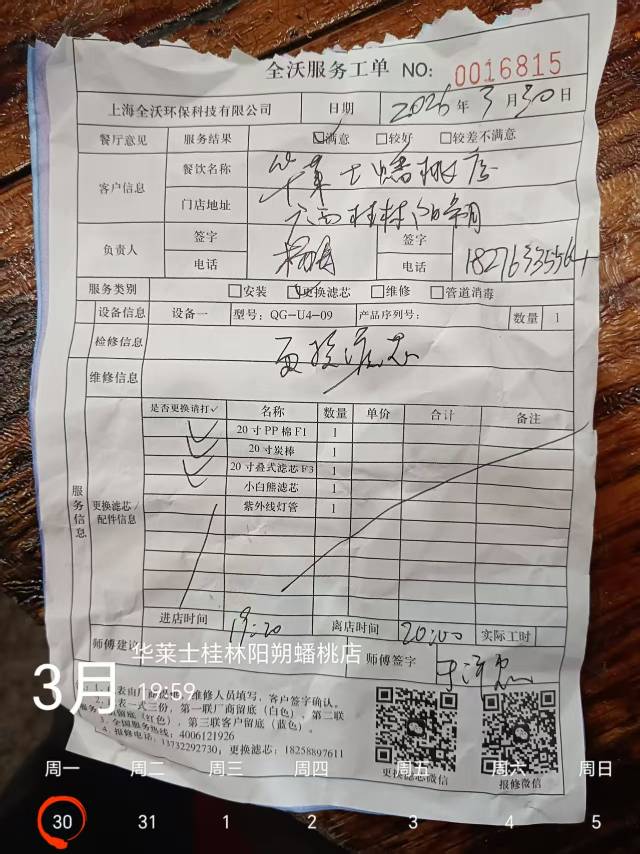 全沃服务工单 NO: 0016815
上海全沃环保科技有限公司 日期 2026年3月30日
餐厅意见 服务结果 ☑满意 □较好 □较差不满意
客户信息 餐饮名称 华莱士蟠桃店
门店地址 广西桂林阳朔
负责人 签字 签字
电话 电话
服务类别 □安装 ☑更换滤芯 □维修 □管道消毒
设备信息 设备一 型号: QG-U4-09 产品序列号: 数量 1
检修信息 更换滤芯
维修信息
服务信息
更换滤芯/配件信息
是否更换请打✓ 名称 数量 单价 合计 备注
✓ 20寸PP棉F1 1
✓ 20寸炭棒 1
✓ 20寸叠式滤芯F3 1
小白熊滤芯 1
紫外线灯管 1
进店时间 19:20 离店时间 20:00 实际工时
师傅建议 师傅签字
华莱士桂林阳朔蟠桃店
3月 19:59
维修人员填写，客户签字确认。
表一式三份，第一联厂商留底（白色），第二联
留底（红色），第三联客户留底（蓝色）。
3、全国服务热线: 4006121926
4、报修电话: 13732292730; 更换滤芯: 18258897611
更换滤芯微信 报修微信
周一 周二 周三 周四 周五 周六 周日
30 31 1 2 3 4 5